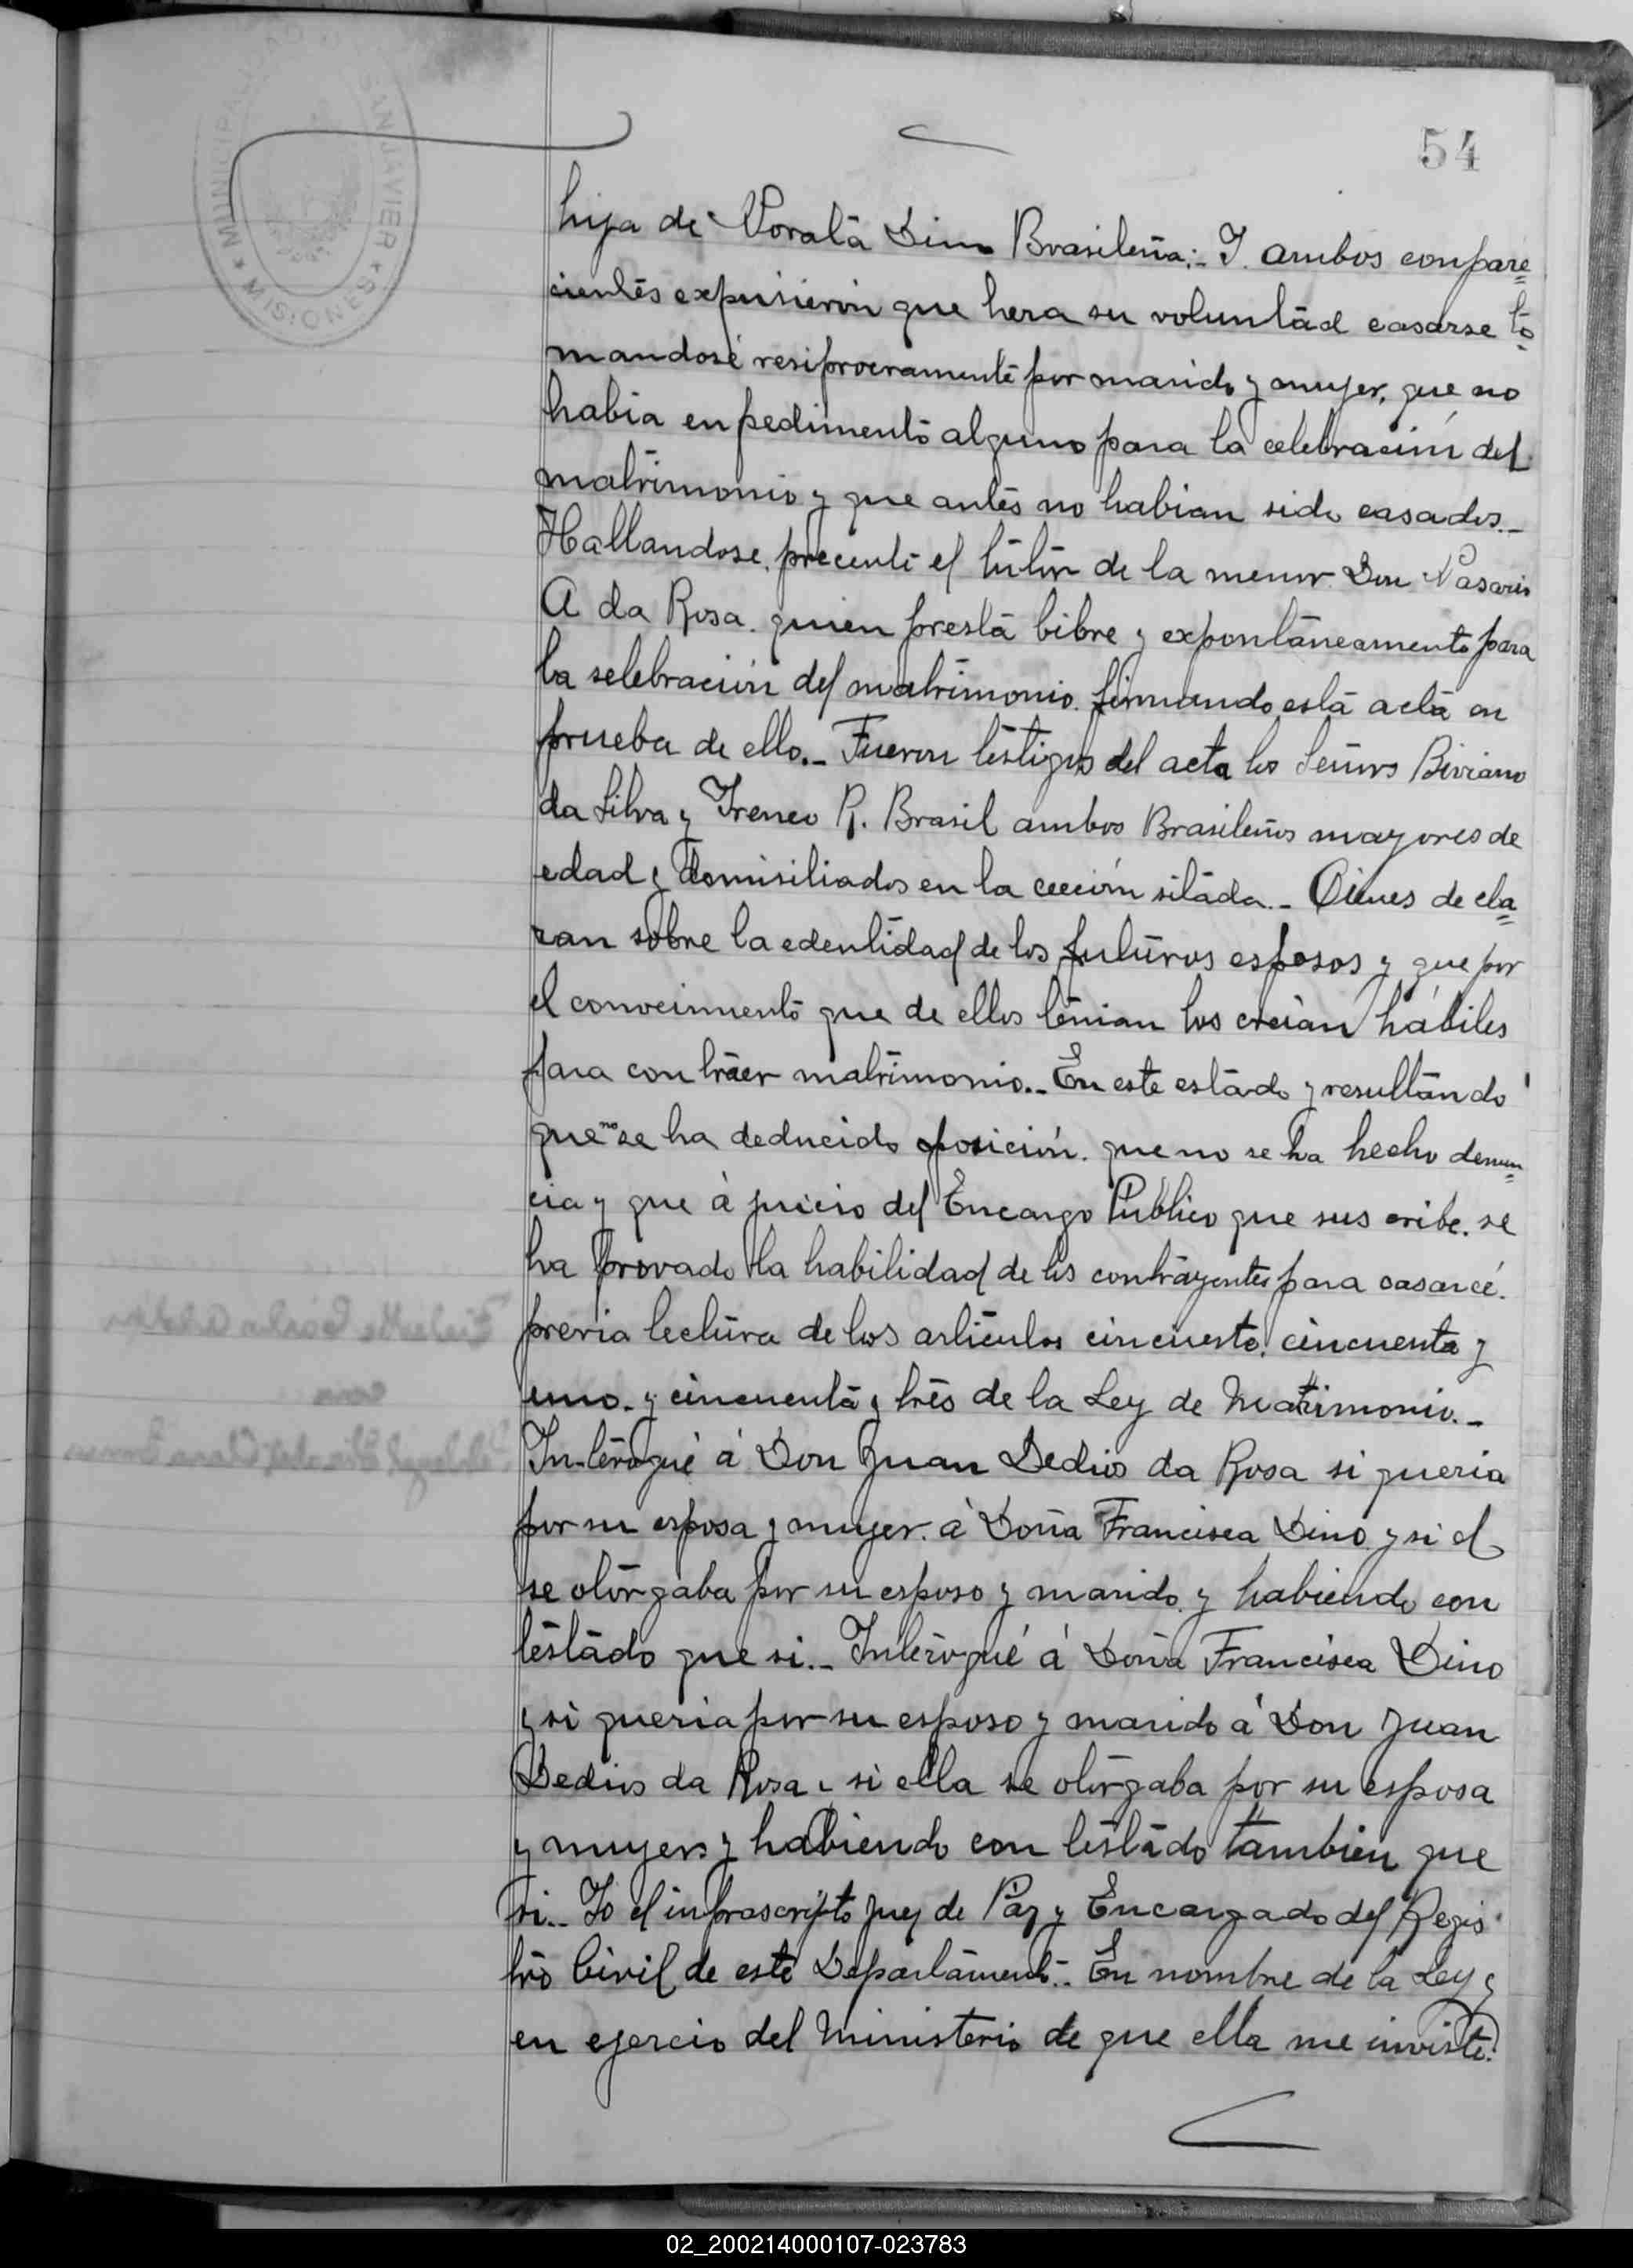 MUNICIPALIDAD SAN JAVIER
* MISIONES *
54
hija de Doralā Dino Brasileña;- I. ambos conpare=
cientēs expusierón que hera su voluntād casarse tō
mandosé resiprocramentē por marido y mujer, que no
habia enpedimentō alguno para la celebración del
matrimonio y que antēs no habian sido casados._
Hallandose. precentē el tūtōr de la menor Don Nasario
A da Rosa. quien prestā libre y expontāneamento para
la selebración del matrimonio. firmando estā actā en
prueba de ello._ Fueron testigos del acta los Señores Biviano
da Silva y Ireneo R. Brasil ambos Brasileños mayores de
edad y domisiliados en la ceción sitāda._ Qienes de cla=
ran sobre la edentidad de los futūros esposos y que por
el conocimientō que de ellos tēnian los creian hábiles
para con trāer matrimonio._ En este estādo y resultāndo
que no se ha deducido oposición. que no se ha hecho denun=
cia y que à juicio del Encargo Público que sus cribe. se
ha provado la habilidad de los contrāyentes para casarcé.
previa lectūra de los artículos cincuento. cincuenta y
uno. y cincuentā y trēs de la Ley de Matrimonio._
Interogué á Don Juan Dedios da Rosa si queria
por su esposa y mujer. à Doña Francisca Dino y si el
se otōrgaba por su esposo y marido. y habiendo con
tēstādo que si._ Interogué á Doña Francisca Dino
y si queria por su esposo y marido á Don Juan
Dedios da Rosa y si ella se otōrgaba por su esposa
y mujer y habiendo con tēstādo tambien que
si._ Yo el infrascripto Juez de Páz y Encargado del Regis
trō Civil de estē Departāmentō._ En nombre de la Ley y
en ejercio del Ministerio de que ella me inviste.
02_200214000107-023783